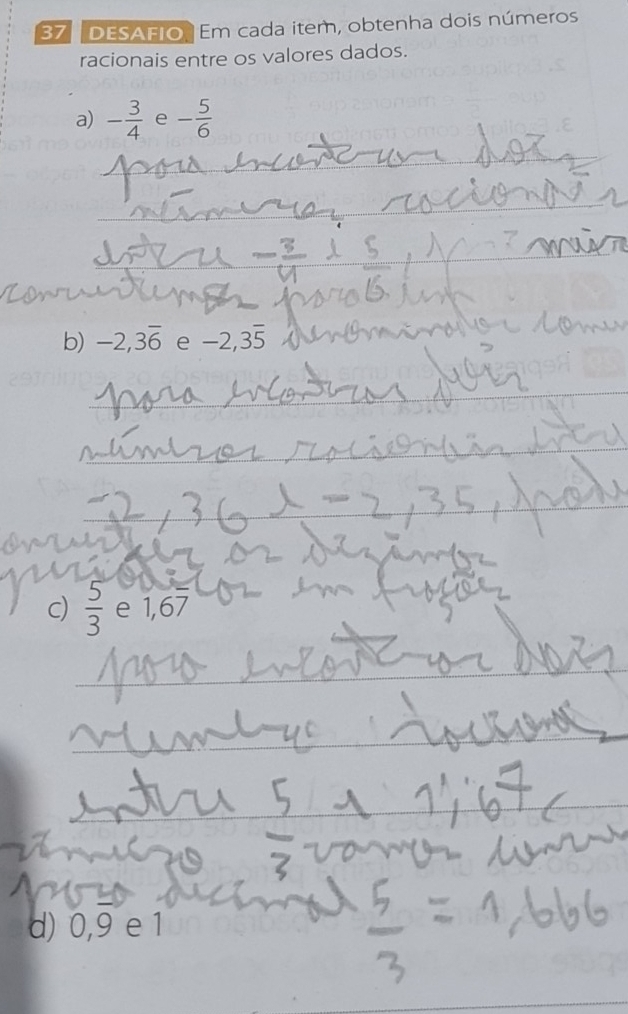 37 DESAFIO. Em cada item, obtenha dois números
racionais entre os valores dados.
a) −3/4 e −5/6
para encontrar dois
números racionais
entre −3/4 e 5/6,
convertemos para um
b) −2,36̅ e −2,35̅ denominador comum
para encontrar dois
números racionais entre
−2,36 e −2,35, pode
converter as dezimas
periódicas em frações
c) 5/3 e 1,67̅
para encontrar dois
números raciona
entre 5/3 e 1,67
vamos conve
para decimal 5/3 = 1,666
d) 0,9̅ e 1